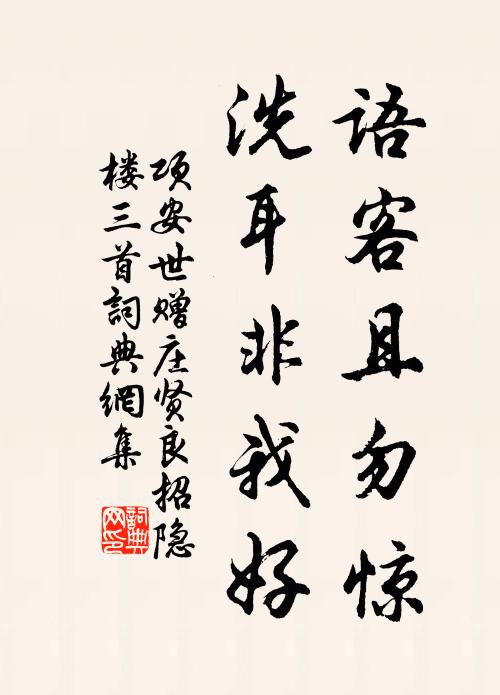 语客且勿惊
洗耳非我好
项安世赠庄贤良招隐
楼三首詞典網集
詞典网印